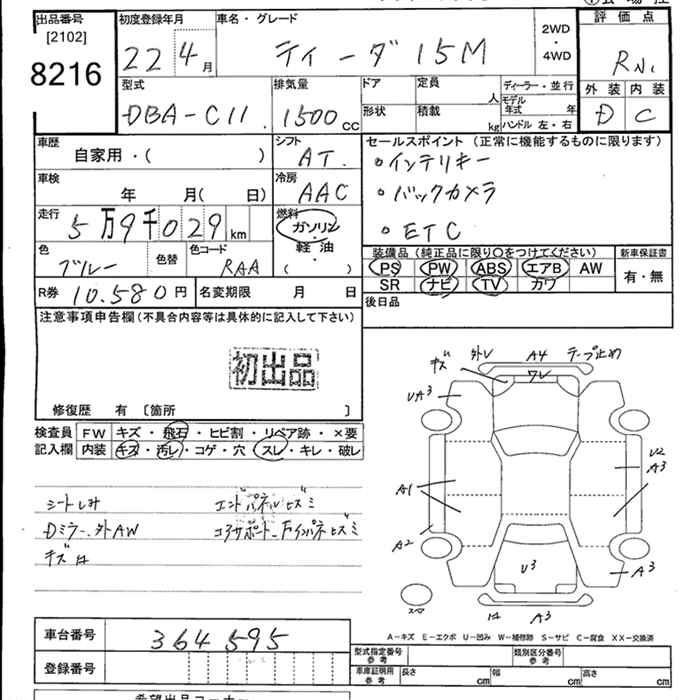 出品番号
[2102]
8216
初度登録年月
22 4月
車名・グレード
ティーダ 15M
2WD
・
4WD
評価点
R
外装 内装
D C
型式
DBA-C11
排気量
1500 CC
ドア
形状
定員 人
積載 kg
ディーラー・並行
モデル年式 年
ハンドル 左・右
車歴
自家用・( )
シフト
AT
セールスポイント (正常に機能するものに限ります)
・インテリキー
・バックカメラ
・ETC
車検
年 月( 日)
冷房
AAC
走行
5万9千029 km
燃料
ガソリン
・
軽油
( )
色
ブルー
色替
色コード
RAA
装備品 (純正品に限り○をつけてください)
PS PW ABS エアB AW
SR ナビ TV カワ
新車保証書
有・無
R券 10,580円
名変期限 月 日
後日品
注意事項申告欄(不具合内容等は具体的に記入して下さい)
初出品
修復歴 有 [箇所 ]
検査員
記入欄
FW キズ・飛石・ヒビ割・リペア跡・×要
内装 キズ・汚レ・コゲ・穴・スレ・キレ・破レ
シートしみ
Dミラー、外AW
キズ
エンドパネルヒズミ
コアサポート、Fインパネヒズミ
キズ 外レ A4 テープ止め
ワレ
UA3
U2
A3
A1
A2
U3
A3
スペア
A3
A-キズ E-エクボ U-凹み W-補修跡 S-サビ C-腐食 XX-交換済
車台番号
364595
登録番号
型式指定番号
参考
類別区分番号
参考
車庫証明用
参考
長さ cm
幅 cm
高さ cm
希望出品コーナー